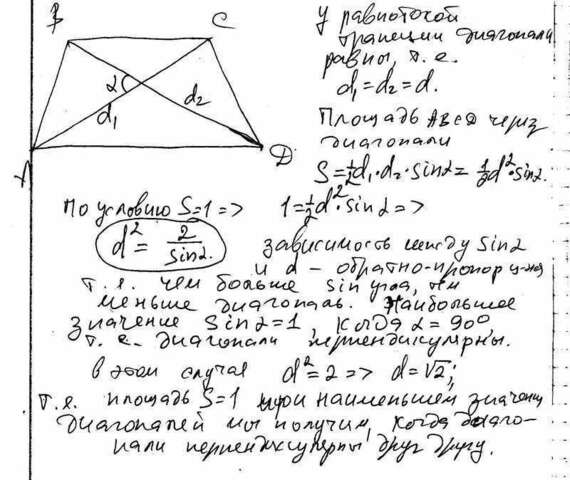 B
C
α
d₁
d₂
A
D
У равнобокой
трапеции диагонали
равны, т.е.
d₁=d₂=d.
Площадь ABCD через
диагонали
S=½d₁·d₂·sinα=½d²·sinα.
По условию S=1 => 1=½d²·sinα =>
d² = 2/sinα. зависимость между sinα
и d – обратно-пропорц-ная
т.е. чем больше sin угла, тем
меньше диагональ. Наибольшее
значение sinα=1, когда α=90°,
т.е. диагонали перпендикулярны.
в этом случае d²=2 => d=√2;
т.е. площадь S=1 при наименьшем значении
диагоналей мы получим, когда диаго-
нали перпендикулярны друг другу.